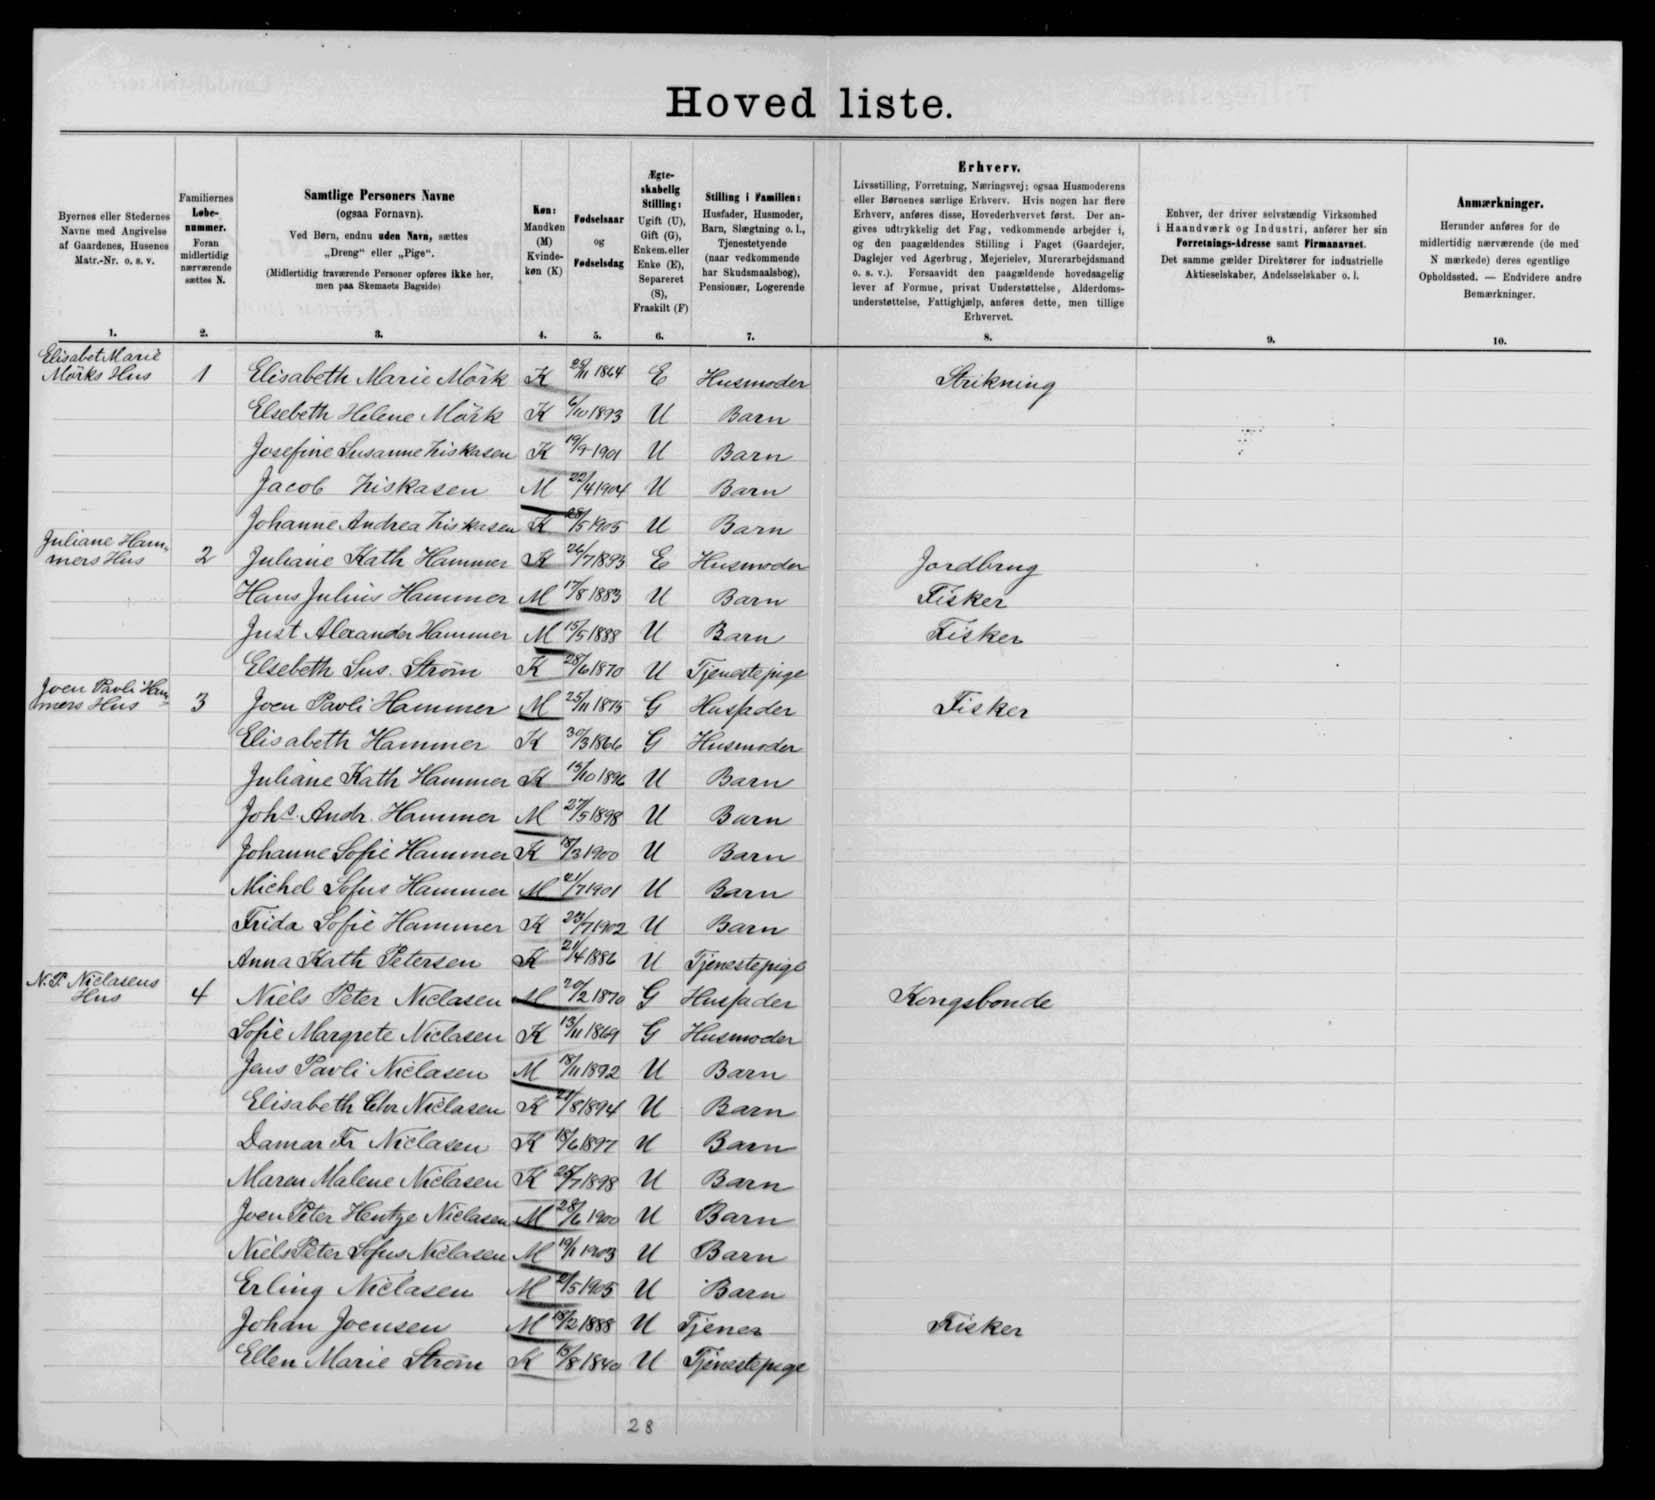 Hoved liste.
Byernes eller Stedernes
Navne med Angivelse
af Gaardenes, Husenes
Matr.-Nr. o. s. v.
1.
Familiernes
Løbe-
nummer.
Foran
midlertidig
nærværende
sættes N.
2.
Samtlige Personers Navne
(ogsaa Fornavn).
Ved Børn, endnu uden Navn, sættes
„Dreng" eller „Pige".
(Midlertidig fraværende Personer opføres ikke her,
men paa Skemaets Bagside)
3.
Køn:
Mandkøn
(M)
Kvinde-
køn (K)
4.
Fødselsaar
og
Fødselsdag
5.
Ægte-
skabelig
Stilling:
Ugift (U),
Gift (G),
Enkem. eller
Enke (E),
Separeret
(S),
Fraskilt (F)
6.
Stilling i Familien:
Husfader, Husmoder,
Barn, Slægtning o. l.,
Tjenestetyende
(naar vedkommende
har Skudsmaalsbog),
Pensionær, Logerende
7.
Erhverv.
Livsstilling, Forretning, Næringsvej; ogsaa Husmoderens
eller Børnenes særlige Erhverv. Hvis nogen har flere
Erhverv, anføres disse, Hovederhvervet først. Der an-
gives udtrykkelig det Fag, vedkommende arbejder i,
og den paagældendes Stilling i Faget (Gaardejer,
Daglejer ved Agerbrug, Mejerielev, Murerarbejdsmand
o. s. v.). Forsaavidt den paagældende hovedsagelig
lever af Formue, privat Understøttelse, Alderdoms-
understøttelse, Fattighjælp, anføres dette, men tillige
Erhvervet.
8.
Enhver, der driver selvstændig Virksomhed
i Haandværk og Industri, anfører her sin
Forretnings-Adresse samt Firmanavnet.
Det samme gælder Direktører for industrielle
Aktieselskaber, Andelsselskaber o. l.
9.
Anmærkninger.
Herunder anføres for de
midlertidig nærværende (de med
N mærkede) deres egentlige
Opholdssted. — Endvidere andre
Bemærkninger.
10.
Elisabet Marie
Mörks Hus 1 Elisabeth Marie Mörk K /11 1864 E Husmoder Strikning
Elsebeth Helene Mörk K 6/10 1893 U Barn
Josefine Susanne Ziskasen K 19/9 1901 U Barn
Jacob Ziskasen M 22/4 1904 U Barn
Johanne Andrea Ziskasen K 28/5 1905 U Barn
Juliane Ham-
mers Hus 2 Juliane Kath Hammer K 26/7 1893 E Husmoder Jordbrug
Hans Julius Hammer M 17/8 1883 U Barn Fisker
Just Alexander Hammer M 15/5 1888 U Barn Fisker
Elsebeth Sus. Strøm K 28/6 1870 U Tjenestepige
Joen Pavli Ham-
mers Hus 3 Joen Pavli Hammer M 25/11 1875 G Husfader Fisker
Elisabeth Hammer K 30/3 1866 G Husmoder
Juliane Kath Hammer K 15/10 1896 U Barn
Johs. Andr. Hammer M 27/5 1898 U Barn
Johanne Sofie Hammer K 18/3 1900 U Barn
Michel Sofus Hammer M 21/7 1901 U Barn
Frida Sofie Hammer K 23/7 1902 U Barn
Anna Kath Petersen K 21/4 1886 U Tjenestepige
N. P. Niclasens
Hus 4 Niels Peter Niclasen M 20/2 1870 G Husfader Kongsbonde
Sofie Margrete Niclasen K 13/11 1869 G Husmoder
Jens Pavli Niclasen M 18/11 1892 U Barn
Elisabeth Chr Niclasen K 21/8 1894 U Barn
Damar Fr Niclasen K 18/6 1897 U Barn
Maren Malene Niclasen K 25/7 1898 U Barn
Joen Peter Hentze Niclasen M 28/6 1900 U Barn
Niels Peter Sofus Niclasen M 19/1 1903 U Barn
Erling Niclasen M /5 1905 U Barn
Johan Joensen M 18/2 1888 U Tjener Fisker
Ellen Marie Strøm K 15/8 1840 U Tjenestepige
28